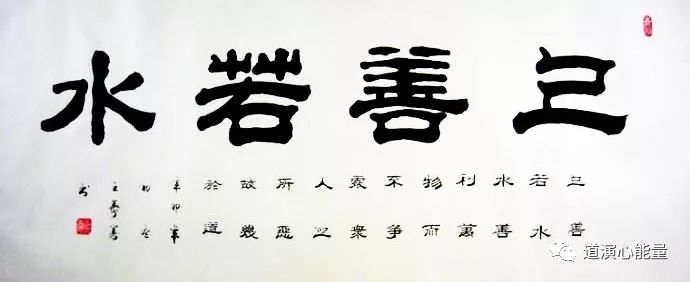 上善若水
上善
若水
水善
利萬
物而
不爭
處衆
人之
所惡
故幾
於道
辛卯年
道演心能量